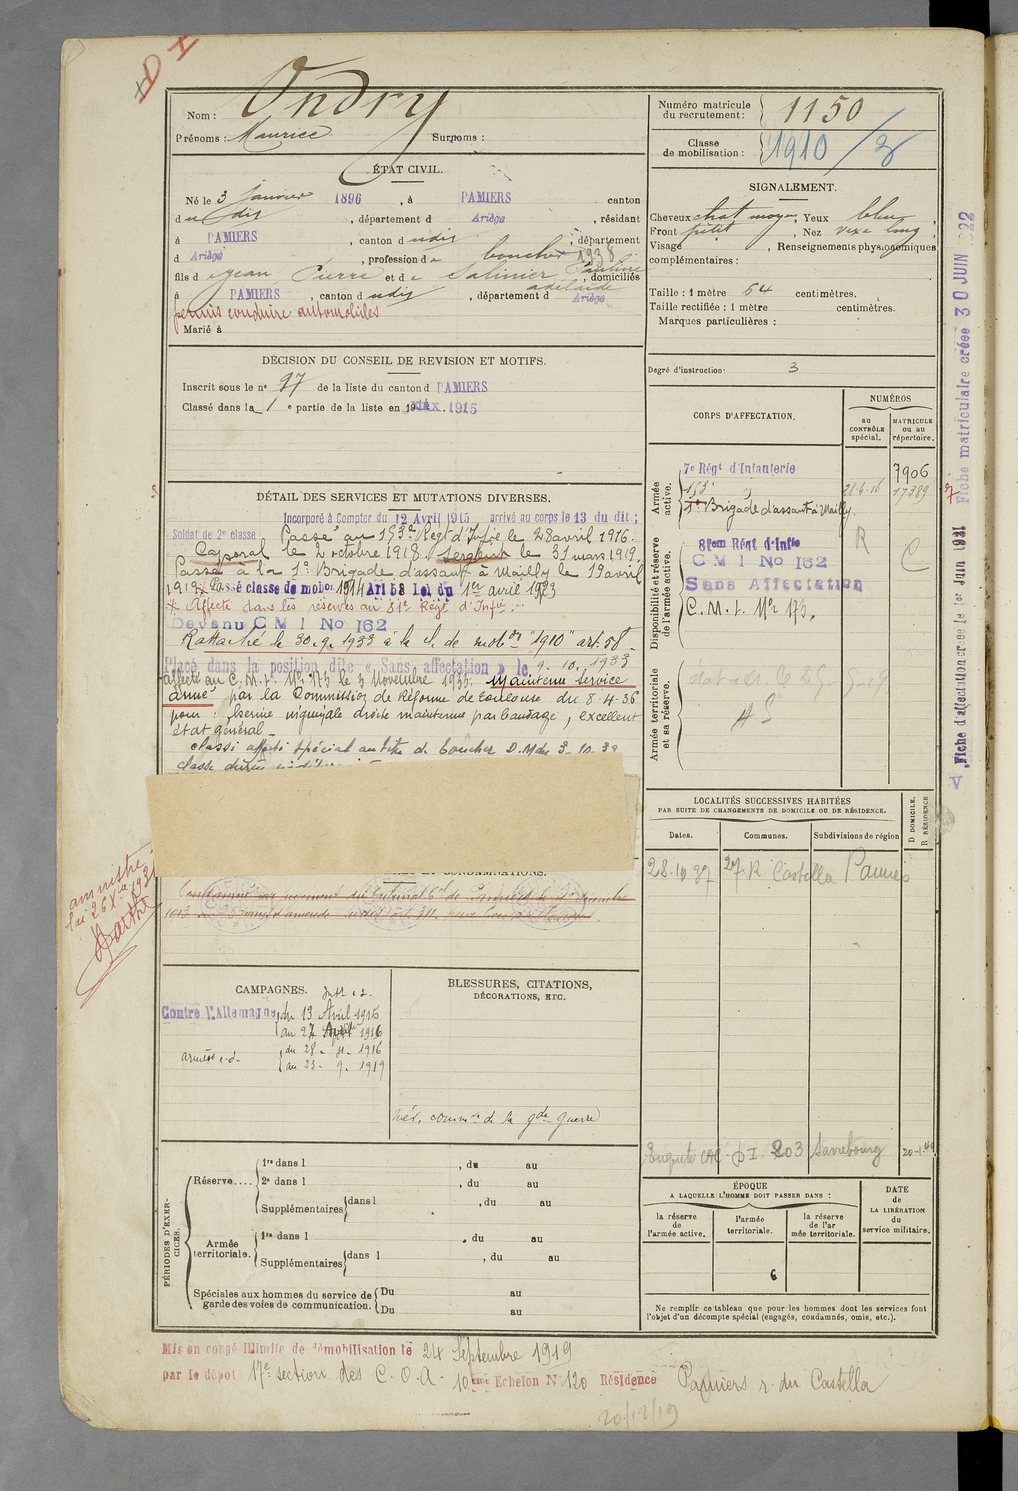 D I
Nom : Ondry
Prénoms : Maurice Surnoms :
Numéro matricule du recrutement : 1150
Classe de mobilisation : 1910 /
ÉTAT CIVIL.
Né le 3 Janvier 1896, à PAMIERS canton
du dit, département d Ariège, résidant
à PAMIERS, canton dudit, département
d Ariège, profession de boucher 1938
fils de Jean Pierre et de Salinier Pauline, domiciliés
adelaïde
à PAMIERS, canton dudit, département d Ariège
permis conduire automobiles
Marié à
SIGNALEMENT.
Cheveux chat moyen, Yeux bleus,
Front petit, Nez vexe long,
Visage , Renseignements physionomiques
complémentaires :
Taille : 1 mètre 64 centimètres.
Taille rectifiée : 1 mètre centimètres.
Marques particulières :
Degré d'instruction : 3
DÉCISION DU CONSEIL DE REVISION ET MOTIFS.
Inscrit sous le n° 97 de la liste du canton d PAMIERS
Classé dans la 1e partie de la liste en 19 1915
DÉTAIL DES SERVICES ET MUTATIONS DIVERSES.
Incorporé à Compter du 12 Avril 1915 arrivé au corps le 13 du dit ;
Soldat de 2e classe Passé au 153e Régt d'Infie le 28 avril 1916.
Caporal le 2 octobre 1918. Sergent le 31 mars 1919.
Passé à la 1e Brigade d'assaut à Mailly le 19 avril
1919 X Passé classe de mobon 1914 Art 58 Loi du 1er avril 1923
X Affecté dans les réserves au 81e Régt d'Infie
Devenu C M I No 162
Rattaché le 30.9.1933 à la cl de mobon "1910" art. 58
Placé dans la position dite « Sans affectation » le 9.10.1933
affecté au C.M.I. No 173 le 3 Novembre 1935. Maintenu service
armé par la Commission de Réforme de Toulouse du 8-4-36
pour : hernie inguinale droite maintenue par bandage, excellent
état général_
classé affecté spécial au titre de boucher D.M du 3-10.39
CORPS D'AFFECTATION.
NUMÉROS
au CONTRÔLE spécial.
MATRICULE ou au répertoire.
Armée active.
7e Régt d'Infanterie 7906
153e 28-4-16 17389
1e Brigade d'assaut à Mailly.
Disponibilité et réserve de l'armée active.
81em Régt d'Infie
C M I No 162
Sans Affectation
C.M.I. No 173.
R
C
Armée territoriale et sa réserve.
A S
LOCALITÉS SUCCESSIVES HABITÉES
PAR SUITE DE CHANGEMENTS DE DOMICILE OU DE RÉSIDENCE.
D DOMICILE.
R RÉSIDENCE
Dates. Communes. Subdivisions de région
28.10.37 27 R Castella Pamiers
203 Sarrebourg 20-1-
ET CONDAMNATIONS.
amnistie
loi 26 Xbre 1931
CAMPAGNES.
Contre l'Allemagne, du 13 Avril 1915
au 27 Avril 1916
armées du 28 - 4 - 1916
au 23 - 9. 1919
BLESSURES, CITATIONS,
DÉCORATIONS, ETC.
Méd. commve de la gde guerre
PÉRIODES D'EXERCICES.
Réserve....
1re dans l , du au
2e dans l , du au
Supplémentaires dans l , du au
Armée territoriale.
1re dans l , du au
Supplémentaires dans l , du au
Spéciales aux hommes du service de garde des voies de communication.
Du au
Du au
ÉPOQUE
A LAQUELLE L'HOMME DOIT PASSER DANS :
la réserve de l'armée active.
l'armée territoriale.
la réserve de l'armée territoriale.
DATE de LA LIBÉRATION du service militaire.
6
Ne remplir ce tableau que pour les hommes dont les services font
l'objet d'un décompte spécial (engagés, condamnés, omis, etc.).
Mis en congé illimité de démobilisation le 24 Septembre 1919
par le dépot 17e section des C.O.A. 10ème Echelon N° 120 Résidence Pamiers r. du Castella
20/12/19
Fiche d'affectation créée le 1er Juin 1931
Fiche matriculaire créée 30 JUIN 1922
V